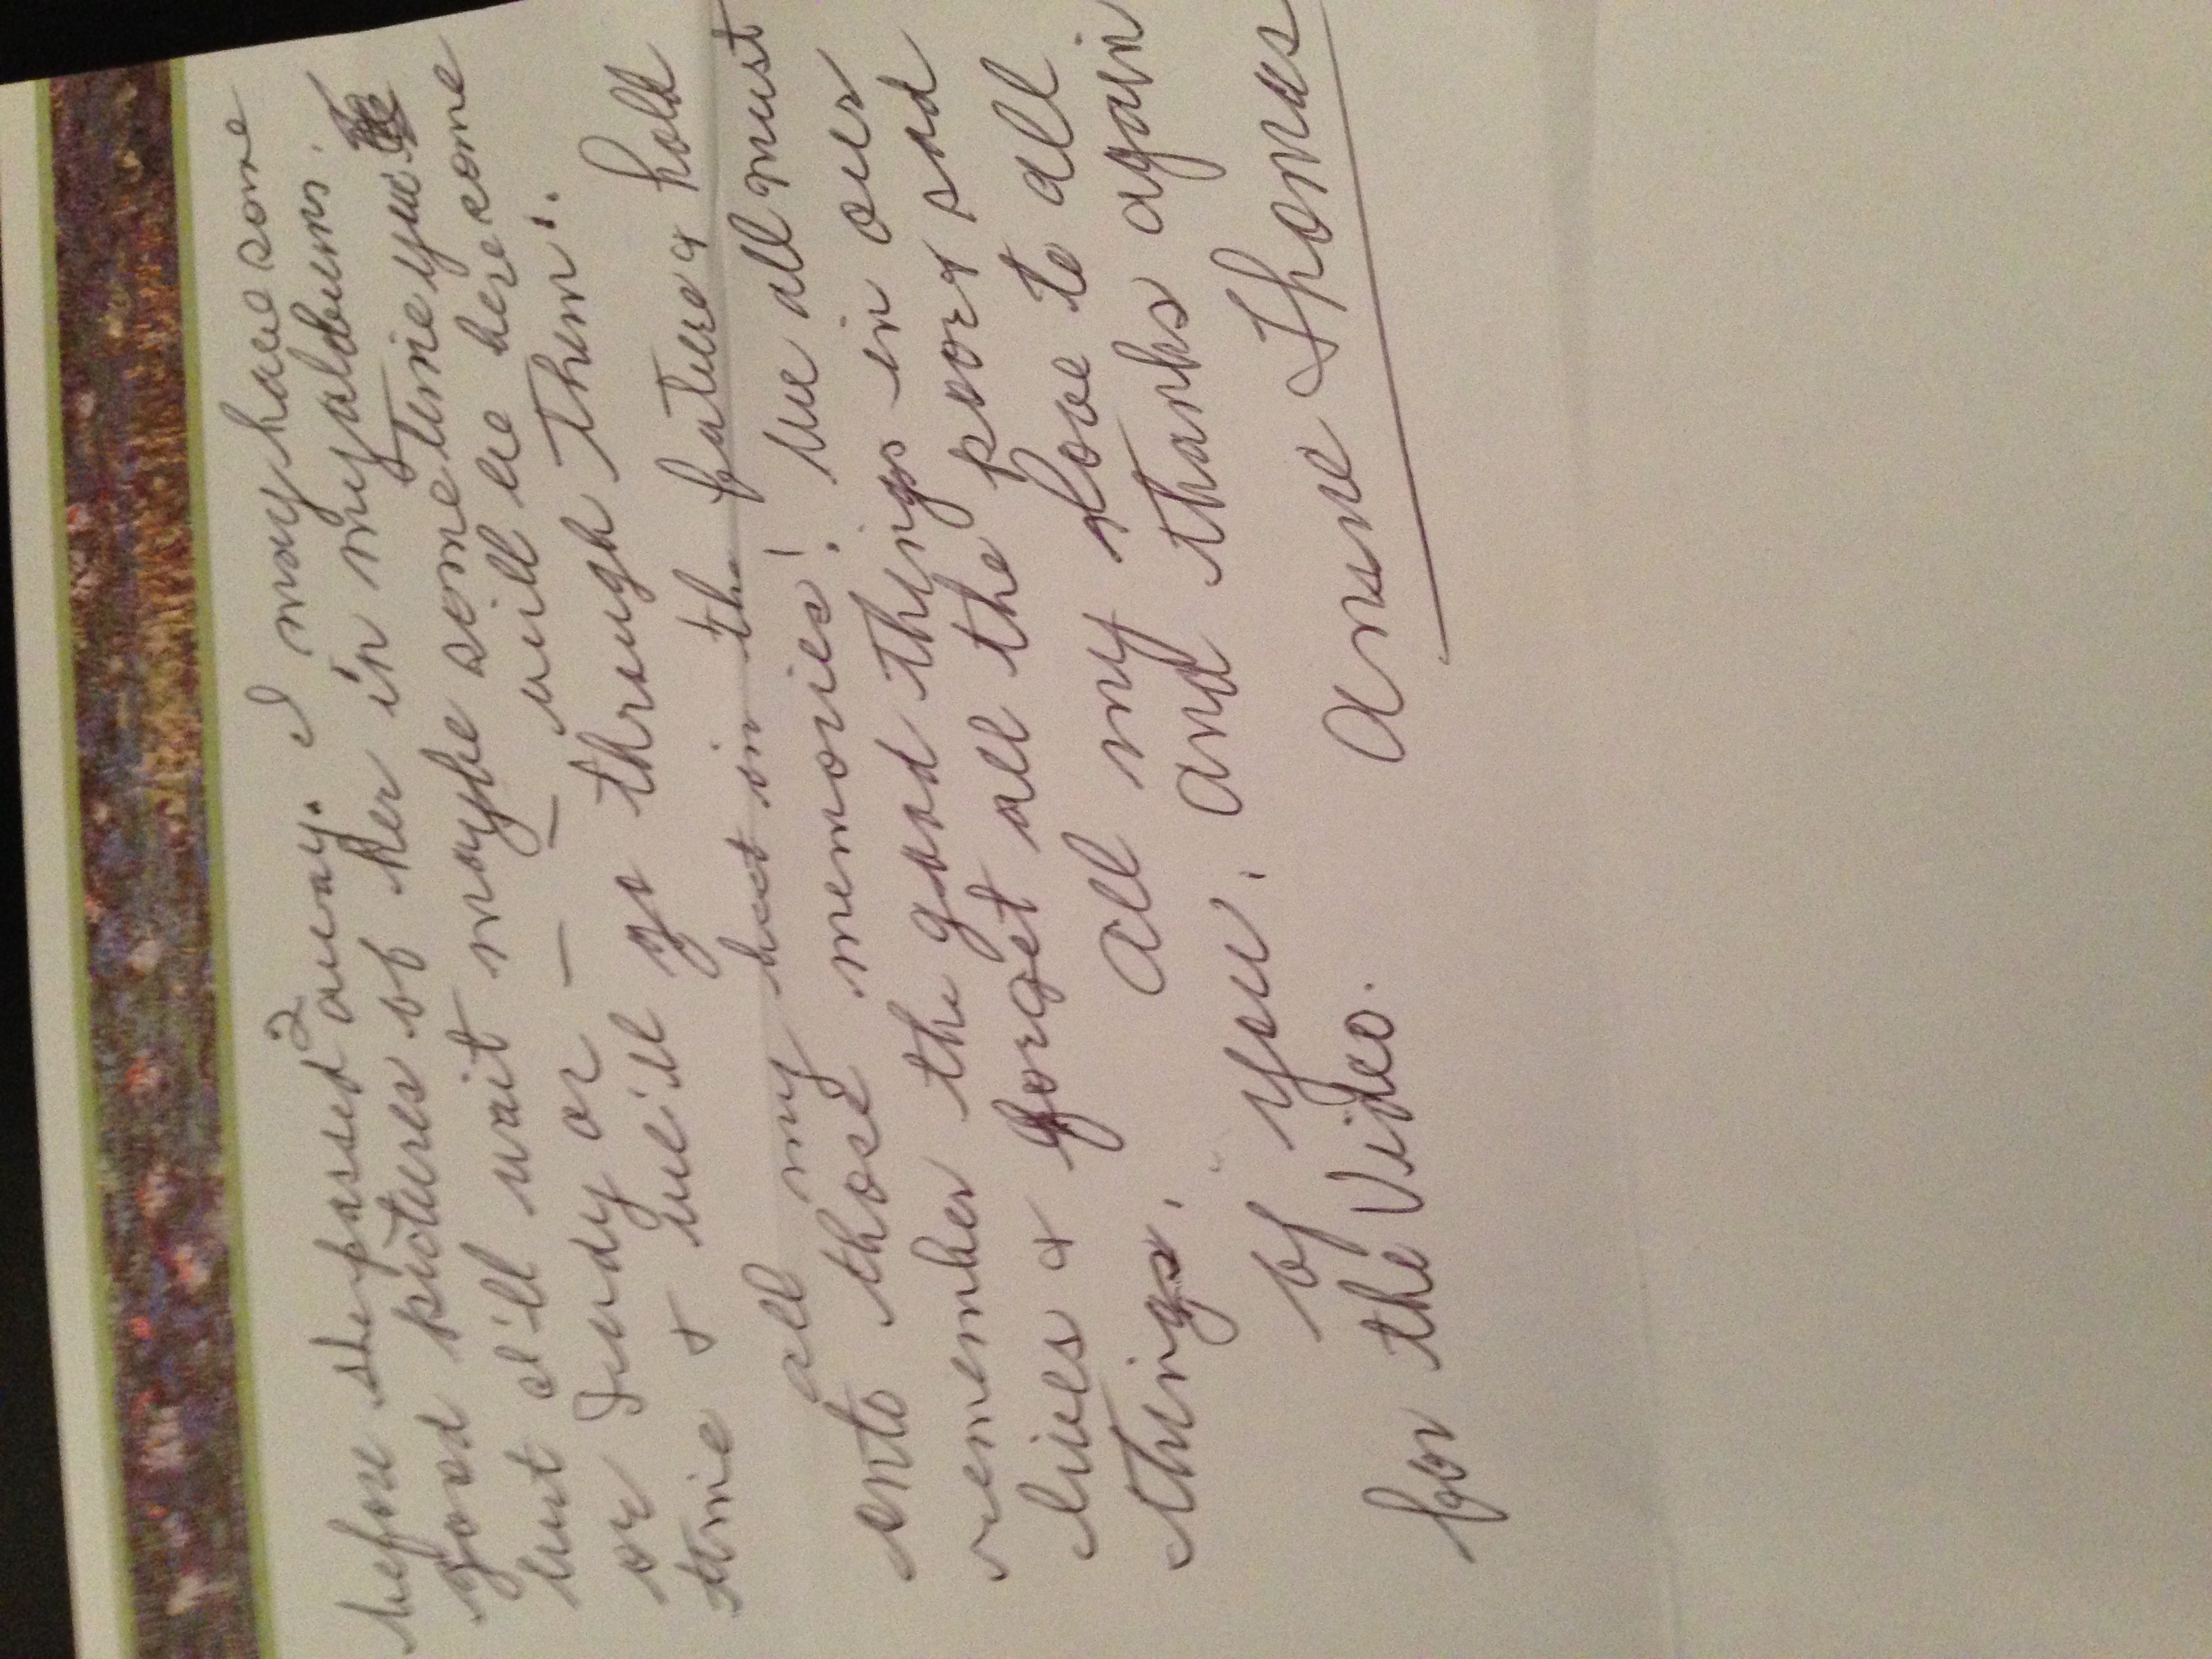 before she passed away. I may have some
good pictures of her in my albums.
but I'll wait maybe some time you
or Judy or — — will be here some
time & we'll go through them!.
all my best in the future & hold
onto those memories! We all must
remember the good things in our
lives & forget all the poor & sad
things. All my love to all
of you. And thanks again
for the Video. Anne Thomas